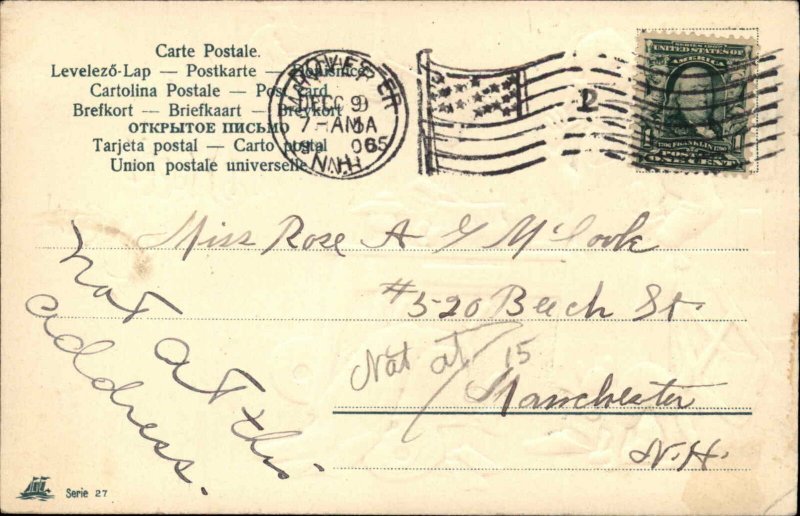 Carte Postale.
Levelező-Lap — Postkarte —
Cartolina Postale — Post card
Brefkort — Briefkaart — Brevkort
ОТКРЫТОЕ ПИСЬМО
Tarjeta postal — Carto postal
Union postale universelle
DEC 9
7-AM
N.H.
SERIES 1902
UNITED STATES OF
AMERICA
1706 FRANKLIN 1790
POSTAGE
ONE CENT
Miss Rose A
#520 Beech St.
Not at 15
Manchester
N.H.
not at this
address.
Serie 27